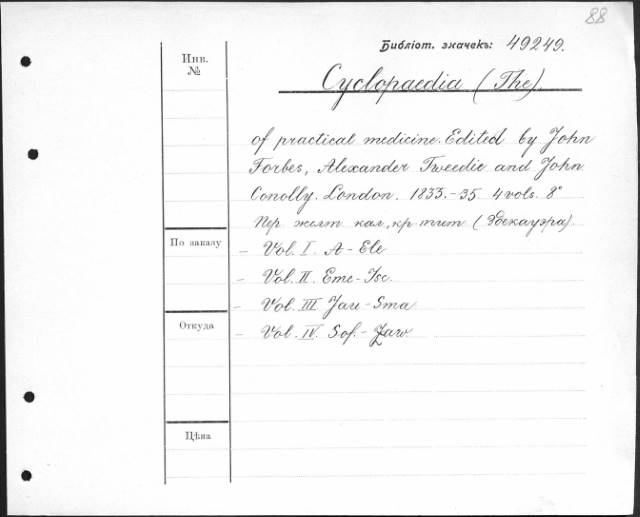 88
Библіот. значекъ: 49249.
Инв.
№
Cyclopaedia (The).
of practical medicine. Edited by John
Forbes, Alexander Tweedie and John
Conolly. London. 1833.-35. 4 vols. 8°
Пер желт кал., кр тит (Эбекауэра).
По заказу
– Vol. I. A - Ele
– Vol. II. Eme - Isc.
– Vol. III Jau - Sma
Откуда
– Vol. IV. Sof. - Zaw.
Цѣна